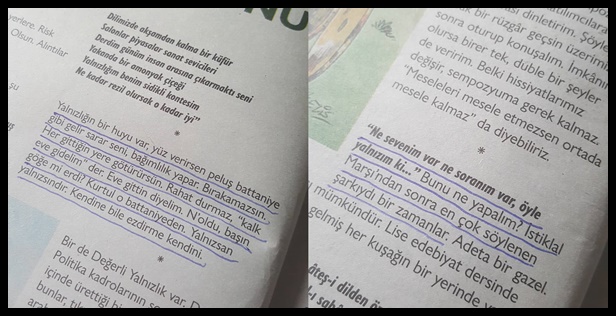 NU
yerlere. Risk
Olsun. Alıntılar
Dilimizde akşamdan kalma bir küfür
Salonlar piyasalar sanat sevicileri
Derdim günüm insan arasına çıkarmaktı seni
Yakanda bir amonyak çiçeği
Yalnızlığım benim sidikli kontesim
Ne kadar rezil olursak o kadar iyi”
*
Yalnızlığın bir huyu var, yüz verirsen peluş battaniye
gibi gelir sarar seni, bağımlılık yapar. Bırakamazsın.
Her gittiğin yere götürürsün. Rahat durmaz, “kalk
eve gidelim” der. Eve gittin diyelim. N'oldu, başın
göğe mi erdi? Kurtul o battaniyeden. Yalnızsan
yalnızsındır. Kendine bile ezdirme kendini.
*
Bir de Değerli Yalnızlık var. D
Politika kadrolarının
içinde ürettiği
bunlar,
bir rüzgâr geçsin üzerimi
sonra oturup konuşalım. İmkânı
olursa birer tek, duble bir şeyler
de veririm. Belki hissiyatlarımız
değişir, sempozyuma gerek kalmaz.
“Meseleleri mesele etmezsen ortada
mesele kalmaz” da diyebiliriz.
*
“Ne sevenim var ne soranım var, öyle
yalnızım ki...” Bunu ne yapalım? İstiklal
Marşı'ndan sonra en çok söylenen
şarkıydı bir zamanlar. Adeta bir gazel.
mümkündür. Lise edebiyat dersinde
gelmiş her kuşağın bir yerinde
dilden